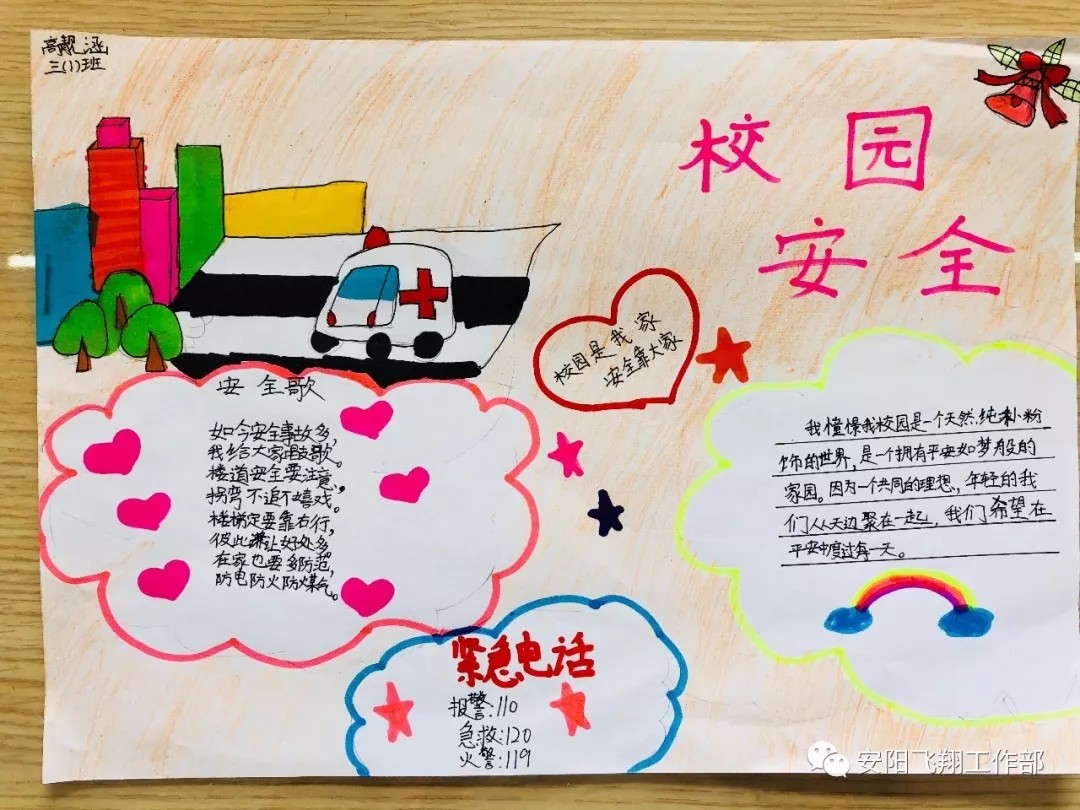 高靓涵
三(1)班
校园
安全
校园是我家
安全靠大家
安全歌
如今安全事故多，
我给大家唱支歌。
楼道安全要注意，
拐弯不追不嬉戏。
楼梯一定要靠右行，
彼此谦让好处多
在家也要多防范，
防电防火防煤气。
我憧憬我校园是一个天然.纯朴粉
饰的世界，是一个拥有平安如梦般的
家园。因为一个共同的理想，年轻的我
们从天边聚在一起，我们希望在
平安中度过每一天。
紧急电话
报警:110
急救:120
火警:119
安阳飞翔工作部